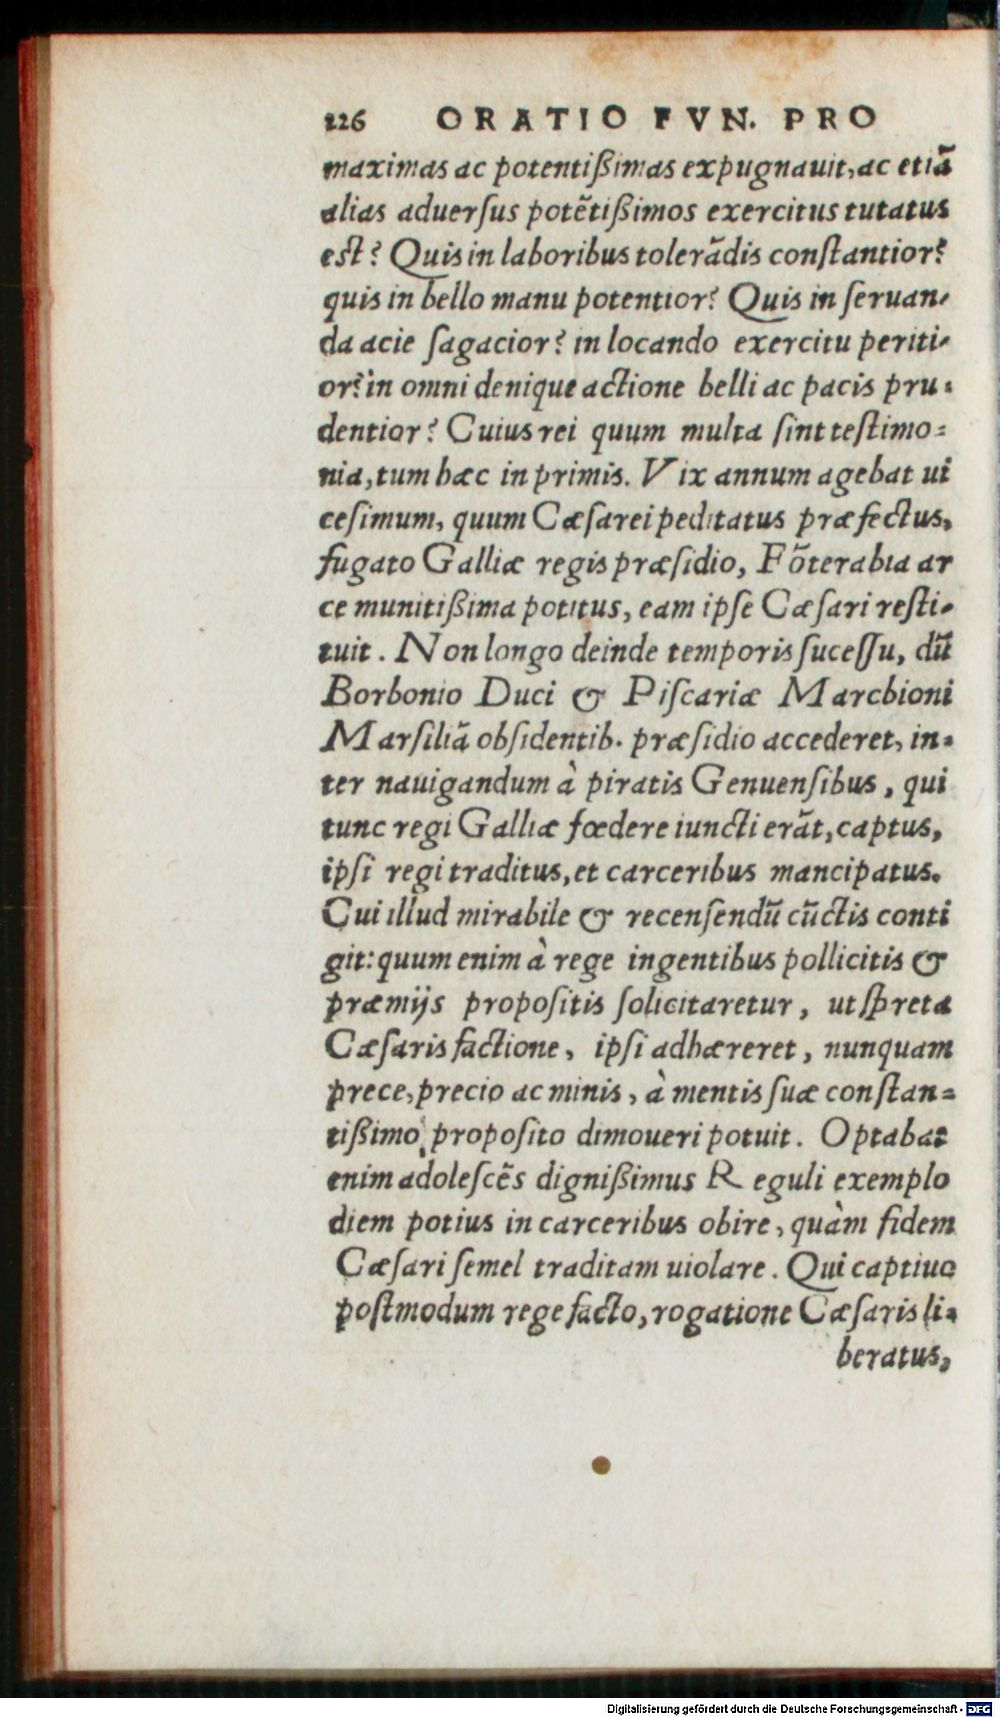 126 ORATIO FVN. PRO
maximas ac potentißimas expugnauit, ac etiã
alias aduerſus potẽtißimos exercitus tutatus
est? Quis in laboribus tolerãdis conſtantior?
quis in bello manu potentior? Quis in ſeruan-
da acie ſagacior? in locando exercitu periti-
or? in omni denique actione belli ac pacis pru-
dentior? Cuius rei quum multa ſint teſtimo=
nia, tum hæc in primis. Vix annum agebat ui
ceſimum, quum Cæſarei peditatus præfectus,
fugato Galliæ regis præſidio, Fõterabia ar
ce munitißima potitus, eam ipſe Cæſari reſti-
tuit. Non longo deinde temporis ſuceſſu, dũ
Borbonio Duci & Piſcariæ Marchioni
Marſiliã obſidentib. præſidio accederet, in-
ter nauigandum à piratis Genuenſibus, qui
tunc regi Galliæ fœdere iuncti erãt, captus,
ipſi regi traditus, et carceribus mancipatus.
Cui illud mirabile & recenſendũ cũctis conti
git: quum enim à rege ingentibus pollicitis &
præmijs propoſitis ſolicitaretur, ut ſpreta
Cæſaris factione, ipſi adhæreret, nunquam
prece, precio ac minis, à mentis ſuæ conſtan=
tißimo propoſito dimoueri potuit. Optabat
enim adoleſcẽs dignißimus Reguli exemplo
diem potius in carceribus obire, quàm fidem
Cæſari ſemel traditam uiolare. Qui captiuo
poſtmodum rege facto, rogatione Cæſaris li-
beratus,
Digitalisierung gefördert durch die Deutsche Forschungsgemeinschaft - DFG